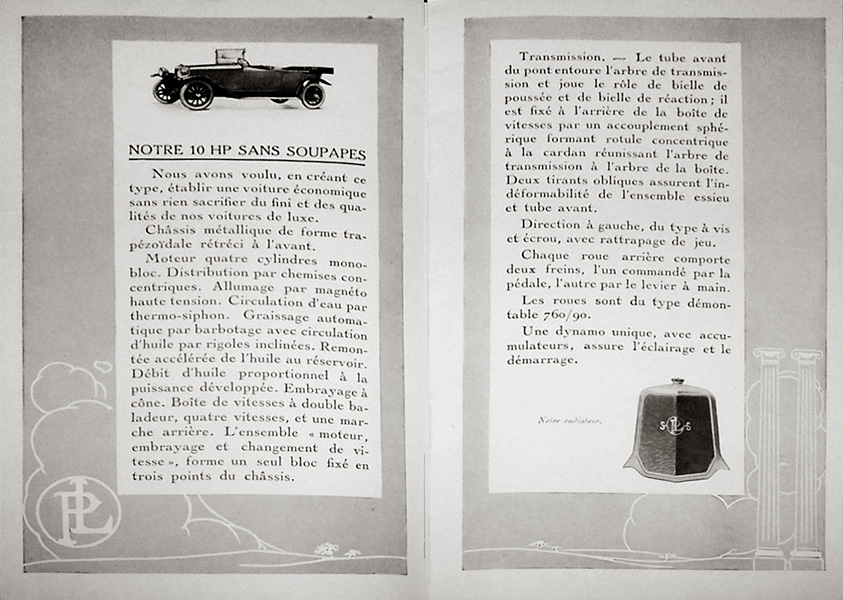 NOTRE 10 HP SANS SOUPAPES
Nous avons voulu, en créant ce
type, établir une voiture économique
sans rien sacrifier du fini et des qua-
lités de nos voitures de luxe.
Châssis métallique de forme tra-
pézoïdale rétréci à l'avant.
Moteur quatre cylindres mono-
bloc. Distribution par chemises con-
centriques. Allumage par magnéto
haute tension. Circulation d'eau par
thermo-siphon. Graissage automa-
tique par barbotage avec circulation
d'huile par rigoles inclinées. Remon-
tée accélérée de l'huile au réservoir.
Débit d'huile proportionnel à la
puissance développée. Embrayage à
cône. Boîte de vitesses à double ba-
ladeur, quatre vitesses, et une mar-
che arrière. L'ensemble « moteur,
embrayage et changement de vi-
tesse », forme un seul bloc fixé en
trois points du châssis.
PL
Transmission. — Le tube avant
du pont entoure l'arbre de transmis-
sion et joue le rôle de bielle de
poussée et de bielle de réaction ; il
est fixé à l'arrière de la boîte de
vitesses par un accouplement sphé-
rique formant rotule concentrique
à la cardan réunissant l'arbre de
transmission à l'arbre de la boîte.
Deux tirants obliques assurent l'in-
déformabilité de l'ensemble essieu
et tube avant.
Direction à gauche, du type à vis
et écrou, avec rattrapage de jeu.
Chaque roue arrière comporte
deux freins, l'un commandé par la
pédale, l'autre par le levier à main.
Les roues sont du type démon-
table 760/90.
Une dynamo unique, avec accu-
mulateurs, assure l'éclairage et le
démarrage.
Notre radiateur.
S PL S